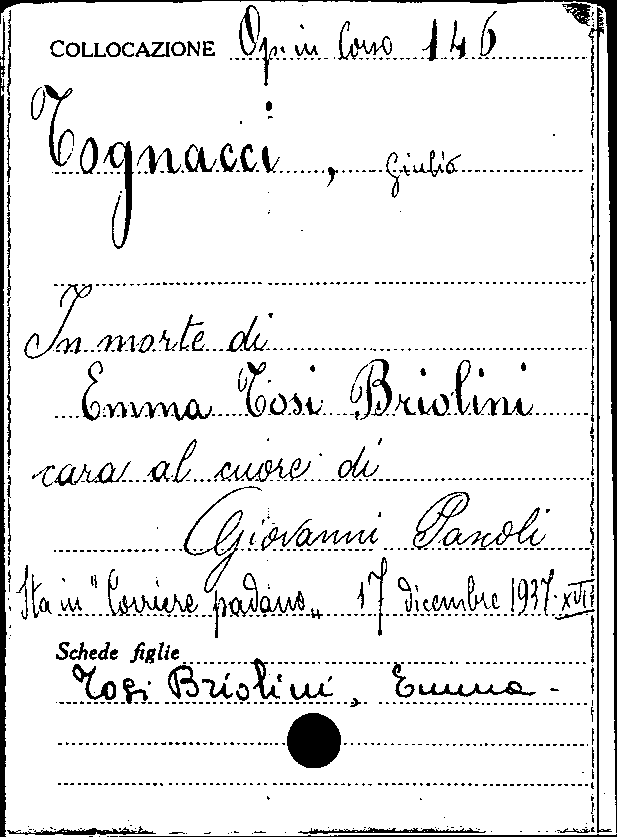 COLLOCAZIONE Op. in Corso 146
Tognacci, Giulio
In morte di
Emma Tosi Briolini
cara al cuore di
Giovanni Panoli
Sta in "Corriere padano„ 17 dicembre 1937-XVI
Schede figlie
Tosi Briolini, Emma -